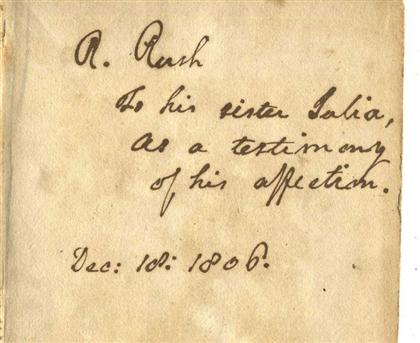 R. Rush
To his sister Julia,
as a testimony
of his affection.
Dec: 18: 1806.